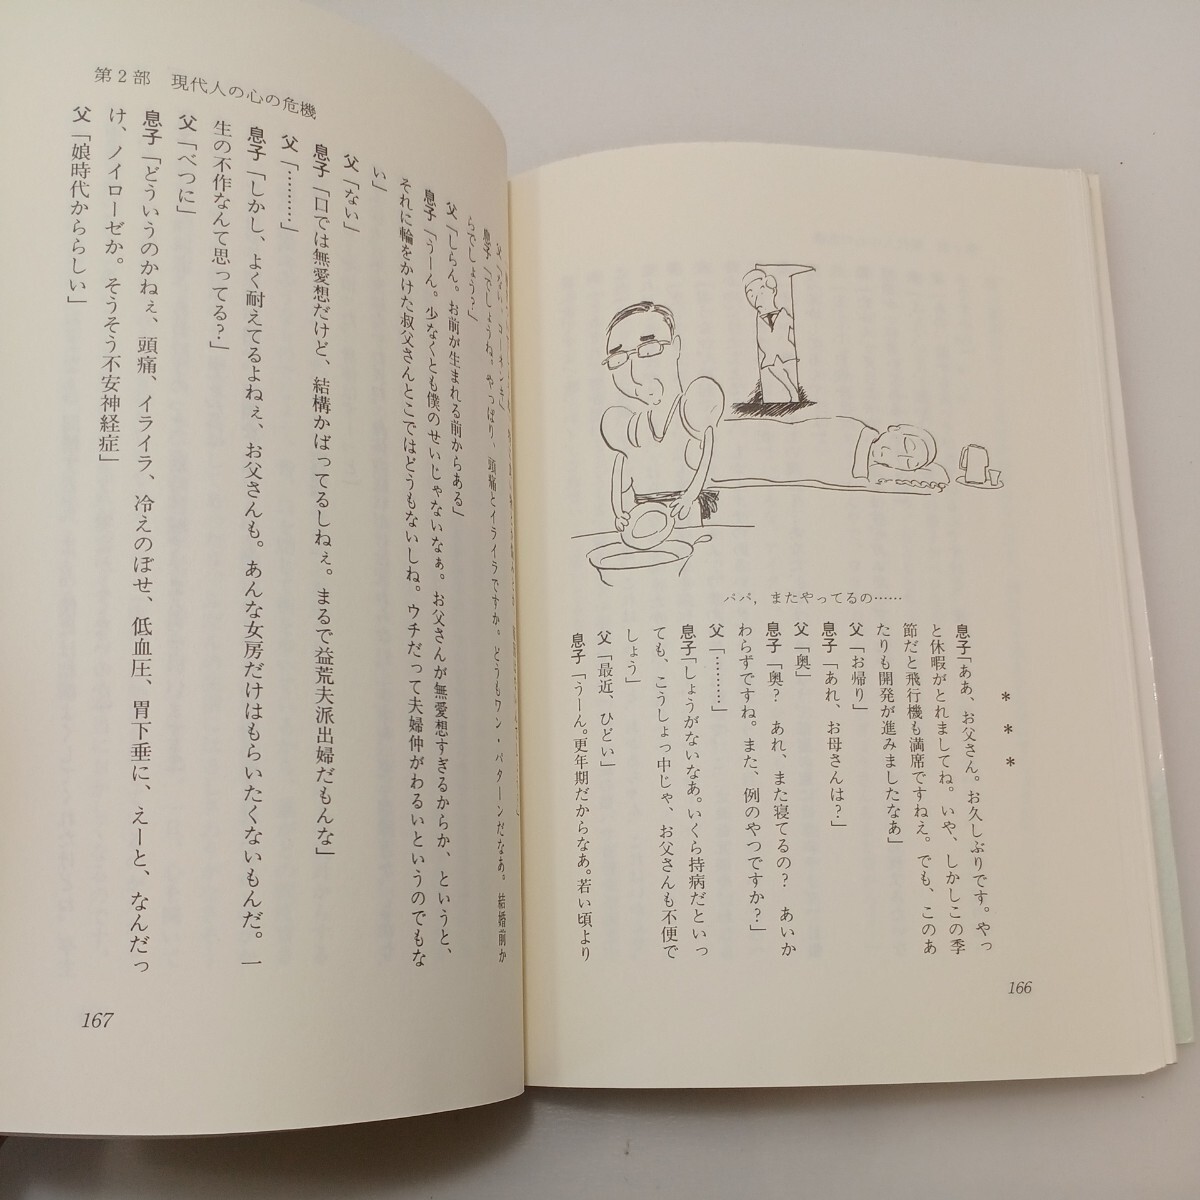 パパ，またやってるの……
＊　＊　＊
息子「ああ、お父さん。お久しぶりです。やっ
と休暇がとれましてね。いや、しかしこの季
節だと飛行機も満席ですねえ。でも、このあ
たりも開発が進みましたなあ」
父「お帰り」
息子「あれ、お母さんは？」
父「奥」
息子「奥？　あれ、また寝てるの？　あいか
わらずですね。また、例のやつですか？」
父「………」
息子「しょうがないなあ。いくら持病だといっ
ても、こうしょっ中じゃ、お父さんも不便で
しょう」
父「最近、ひどい」
息子「うーん。更年期だからなあ。若い頃より
166
第2部　現代人の心の危機
息子「でしょうね。やっぱり、頭痛とイライラですか。どうもワン・パターンだなあ。結婚前か
らでしょう？」
父「しらん。お前が生まれる前からある」
息子「うーん。少なくとも僕のせいじゃないなぁ。お父さんが無愛想すぎるからか、というと、
それに輪をかけた叔父さんとこではどうもないしね。ウチだって夫婦仲がわるいというのでもな
い」
父「ない」
息子「口では無愛想だけど、結構かばってるしねぇ。まるで益荒夫派出婦だもんな」
父「………」
息子「しかし、よく耐えてるよねぇ、お父さんも。あんな女房だけはもらいたくないもんだ。一
生の不作なんて思ってる？」
父「べつに」
息子「どういうのかねぇ、頭痛、イライラ、冷えのぼせ、低血圧、胃下垂に、えーと、なんだっ
け、ノイローゼか。そうそう不安神経症」
父「娘時代かららしい」
167